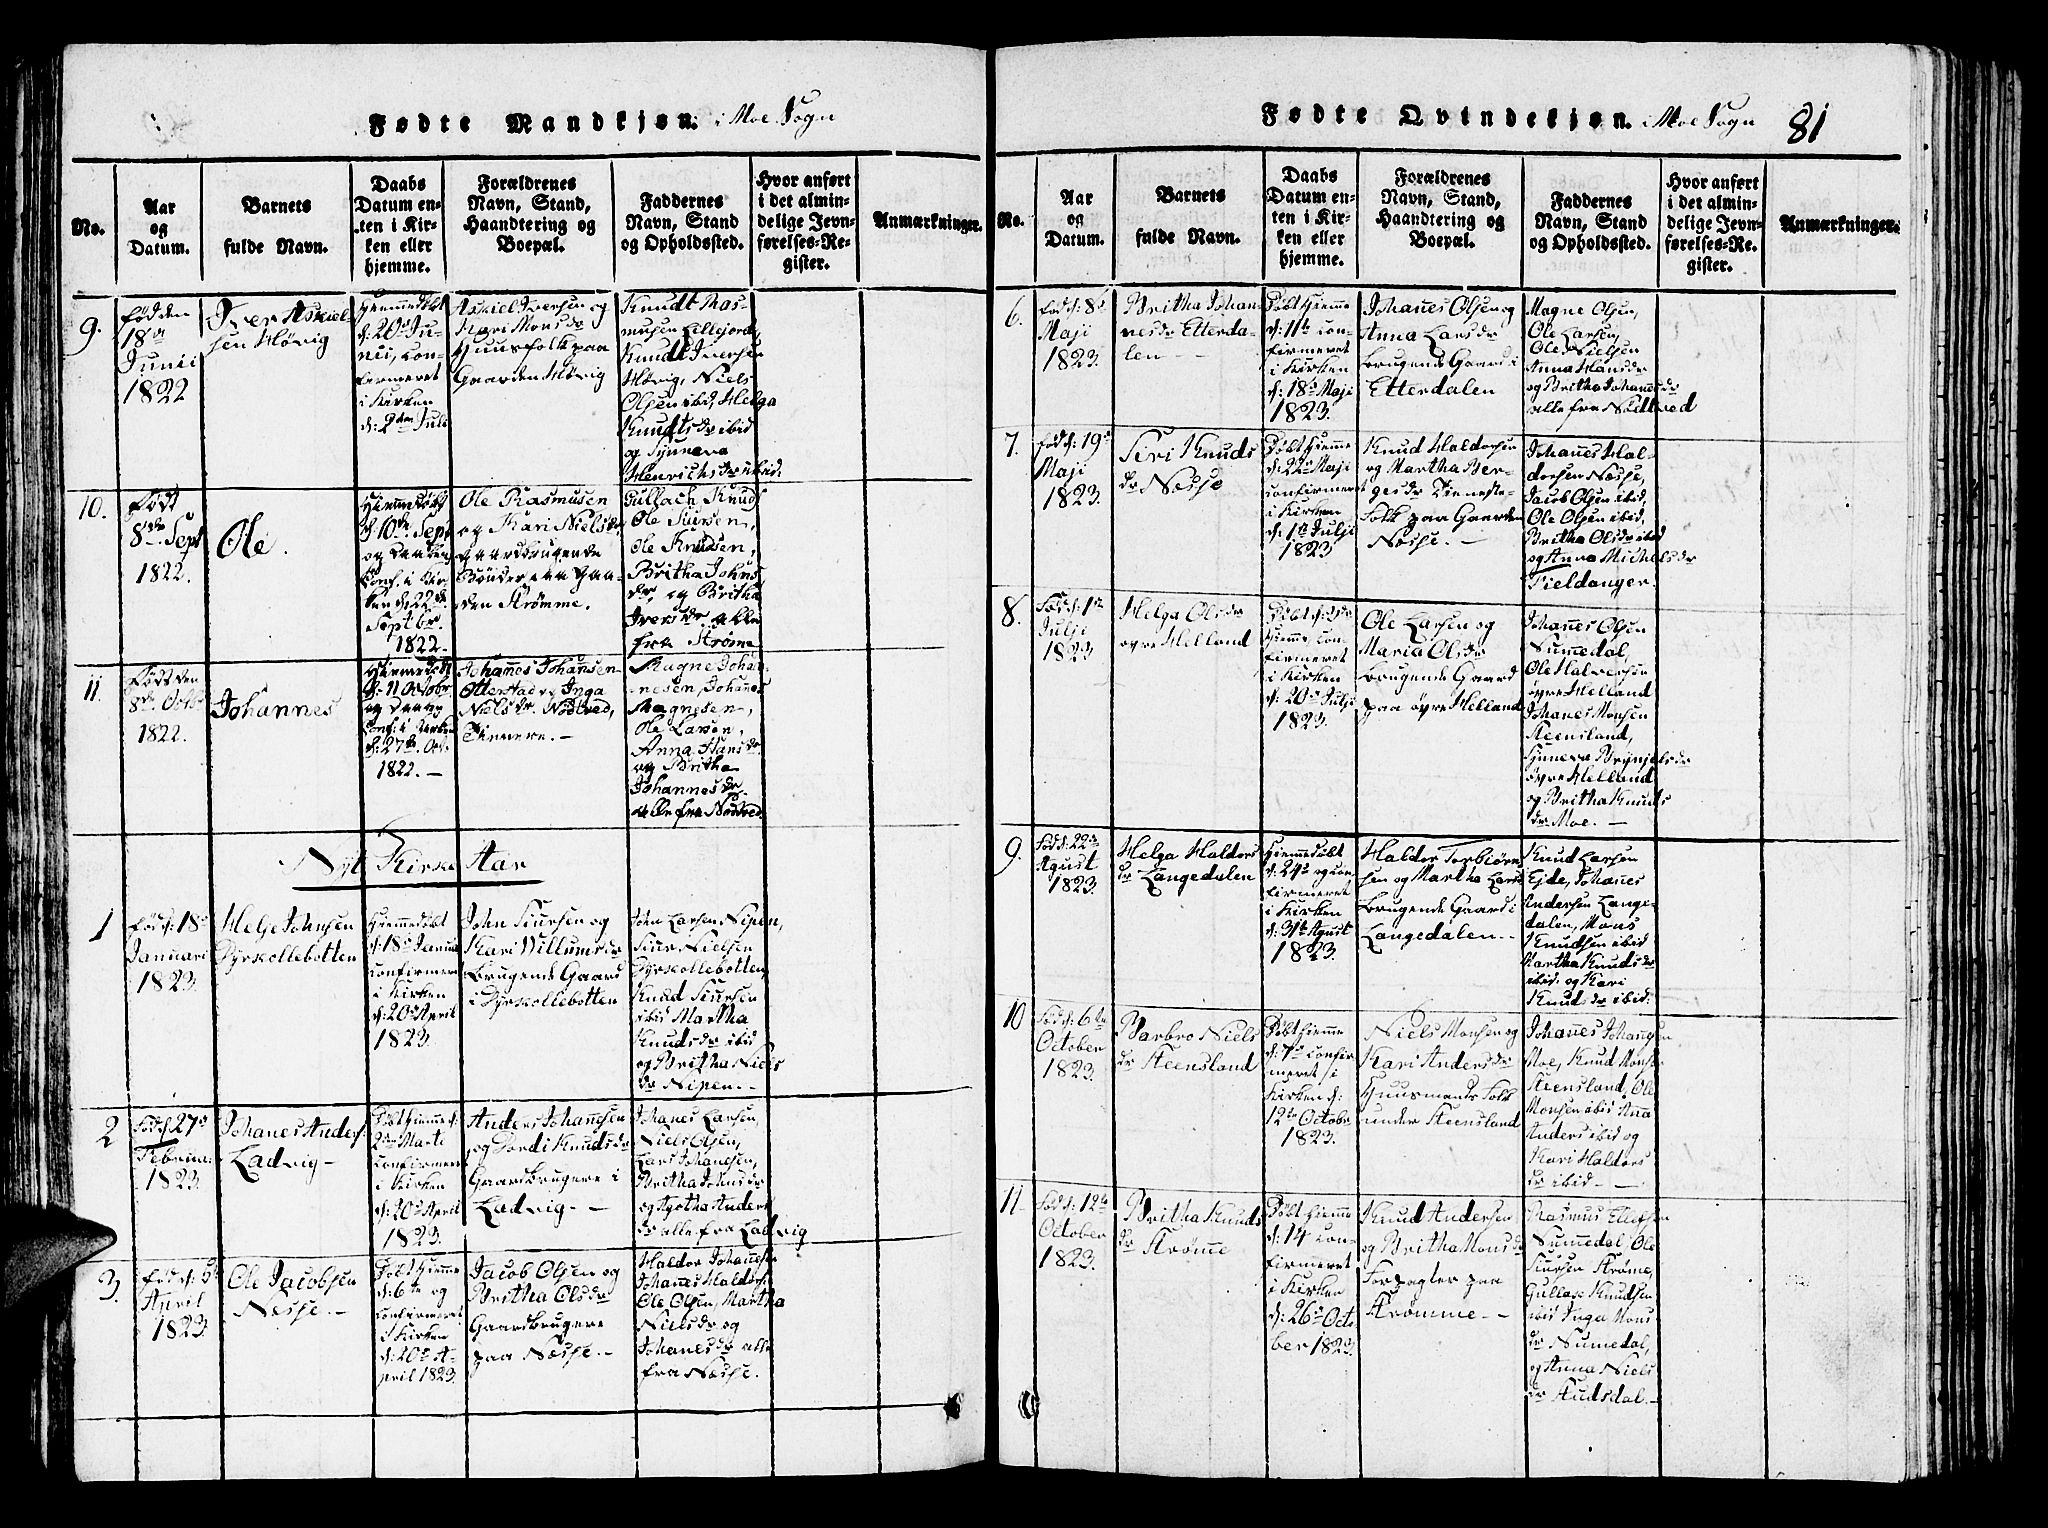 Fødte Mandkjøn. i Moe Sogn
No.
Aar
og
Datum.
Barnets
fulde Navn.
Daabs
Datum en-
ten i Kir-
ken eller
hjemme.
Forældrenes
Navn, Stand,
Haandtering og
Boepæl.
Faddernes
Navn, Stand
og Opholdssted.
Hvor anført
i det almin-
delige Jevn-
førelses-Re-
gister.
Anmærkninger.
9.
fød den
18de
Junii
1822
Iver Askiel-
sen Høvig
Hjemmedøbt
d: 20de Ju-
nii, con-
firmeret
i Kirken
d: 2den Juli
Askiel Iversen og
Kari Monsdr
Huusfolk paa
Gaarden Høvig
Knudt Ras-
musen Lillejord,
Knudt Iversen
Høvig, Niels
Olsen ibid, Helga
Knudtsdr ibid
og Synneva
Henrichsdr ibid:
10.
Født
8de Sept
1822.
Ole.
Hiemmedøbt
d. 10de Sept
og Daaben
Conf. i Kir-
ken d. 22de
Septbr.
1822.
Ole Rasmusen
og Kari Nielsdr,
gaardbrugende
Bønder paa Gaa-
den Strømme.
Gullach Knuds
Ole Siursen,
Ole Knudsen,
Britha Johns
dr, og Britha
Iversdr alle
fra Strøme
11.
Født den
8de Octbr
1822.
Johannes
Hiemmedøbt
d. 11 Octobr.
og Daaben
Conf. i Kirken
d. 27de Oct.
1822. —
Johannes Johansen
Otterstad og Inga
Nielsdr. Nødtved,
Tienere. —
Magne Johan-
nesen, Johanes
Magnesen,
Ole Larsen,
Anna Hansdr.
og Britha
Johannesdr.
alle fra Nødtved.
Nyt Kirke Aar
1
fød d: 18de
Januari
1823.
Helje Johnsen
Dyrkollebotten
Hjemmedøbt
d: 18de Janua
confirmere
i Kirken
d: 20de April
1823.
John Siursen og
Kari Villumsdr
brugende Gaard
i Dyrkollebotten
John Larsen Nipen,
Siur Nielsen
Dyrkollebotten,
Knud Siursen
ibid Martha
Knudsdr ibid
og Britha Niels
dr Nipen. —
2
Fød d: 27de
Februar
1823.
Johanes Anders:
Ladvig —
Døbt hjemme d:
2den Marti
confirmere
i Kirken
d: 20de April
1823.
Anders Johansen
og Gordi Knudsdr
Gaardbrugere i
Ladvig — —
Johanes Larsen,
Niels Olsen,
Lars Johanesen,
Britha Johnsdr
og Agotha Anders
dr alle fra Ladvig
3.
fød d: 5te
April
1823.
Ole Jacobsen
Nesse. —
Døbt hjemme
d: 6te og
confirmeret
i Kirken
d: 20de A-
pril 1823.
Jacob Olsen og
Britha Olsdr
Gaardbrugere
paa Nesse. —
Haldor Johanesen
Johanes Haldors:
Ole Olsen, Martha
Nielsdr og
Johanesdr alle
fra Nesse.
Fødte Qvindekjøn. i Moe Sogn
81
No.
Aar
og
Datum.
Barnets
fulde Navn.
Daabs
Datum en-
ten i Kir-
ken eller
hjemme.
Forældrenes
Navn, Stand,
Haandtering og
Boepæl.
Faddernes
Navn, Stand
og Opholdssted.
Hvor anført
i det almin-
delige Jevn-
førelses-Re-
gister.
Anmærkninger.
6.
fød d: 8de
Maji
1823.
Britha Johan
nesdr Etterda-
len — —
Døbt hjemme
d: 11te con-
firmeret
i Kirken
d: 18de Maji
1823.
Johanes Olsen og
Anna Larsdr
brugende Gaard i
Etterdalen
Magne Olsen,
Ole Larsen,
Ole Nielsen
Anna Hansdr
og Britha Johanesdr
alle fra Nødtved
7.
fød d: 19de
Maji
1823.
Siri Knuds
dr Nesse
Døbt hjemme
d: 22de Maji
confirmeret
i Kirken
d: 1te Julji
1823
Knud Haldorsen
og Martha Ber-
gesdr Tieneste-
folk paa Gaarden
Nesse. —
Johanes Hal-
dorsen Nesse,
Jacob Olsen ibid,
Ole Olsen ibid,
Britha Olsdr ibid
og Anna Michelsdr
Fieldanger.
8.
Fød d: 1te
Julji
1823
Helga Olsdr
øvre Helland
Døbt d: 3de
hjemme con-
firmeret
i Kirken
d: 20de Julji
1823.
Ole Larsen og
Maria Olsdr
brugende Gaard
paa øvre Helland
Johanes Olsen
Numedal,
Ole Halversen
øvre Helland
Johanes Monsen
Steensland,
Synneva Brynjelsdr
øvre Helland
og Britha Knuds
dr Moe. —
9.
Fød d: 22de
Agust
1823.
Helga Haldors
dr Langedalen
Hjemmedøbt
d: 24de og con-
firmeret
i Kirken
d: 31te Agust
1823.
Haldor Torbiørn
sen og Martha Lars
brugende Gaard i
Langedalen. —
Knud Larsen
Ejde, Johanes
Andersen Lange-
dalen, Mons
Knudsen ibid
Martha Knudsdr
ibid: og Kari
Knudsdr ibid:
10
Fød d: 6te
October
1823.
Barbro Niels
dr Steensland
Døbt hjemme
d: 7de confir
meret i
Kirken d:
12te October
1823.
Niels Monsen og
Kari Andersdr
Huusmands Folk
under Steensland
Johanes Johansen
Moe, Knud Mons
Steensland, Ole
Monsen ibid Ana
Anders ibid og
Kari Haldors
dr ibid — —
11
Fød d: 12te
October
1823.
Britha Knuds
dr Strømme
Døbt hjemme
d: 14 con-
firmeret
i Kirken
d: 26de Octo
ber 1823.
Knud Andersen
og Britha Monsdr
Forpagter paa
Strømme — —
Rasmus Ellefsen
Numedal Ole
Siursen Strøme,
Gullak Knudsen
ibid Inga Mons
dr Numedal,
og Anna Niels
dr Audsdal. —